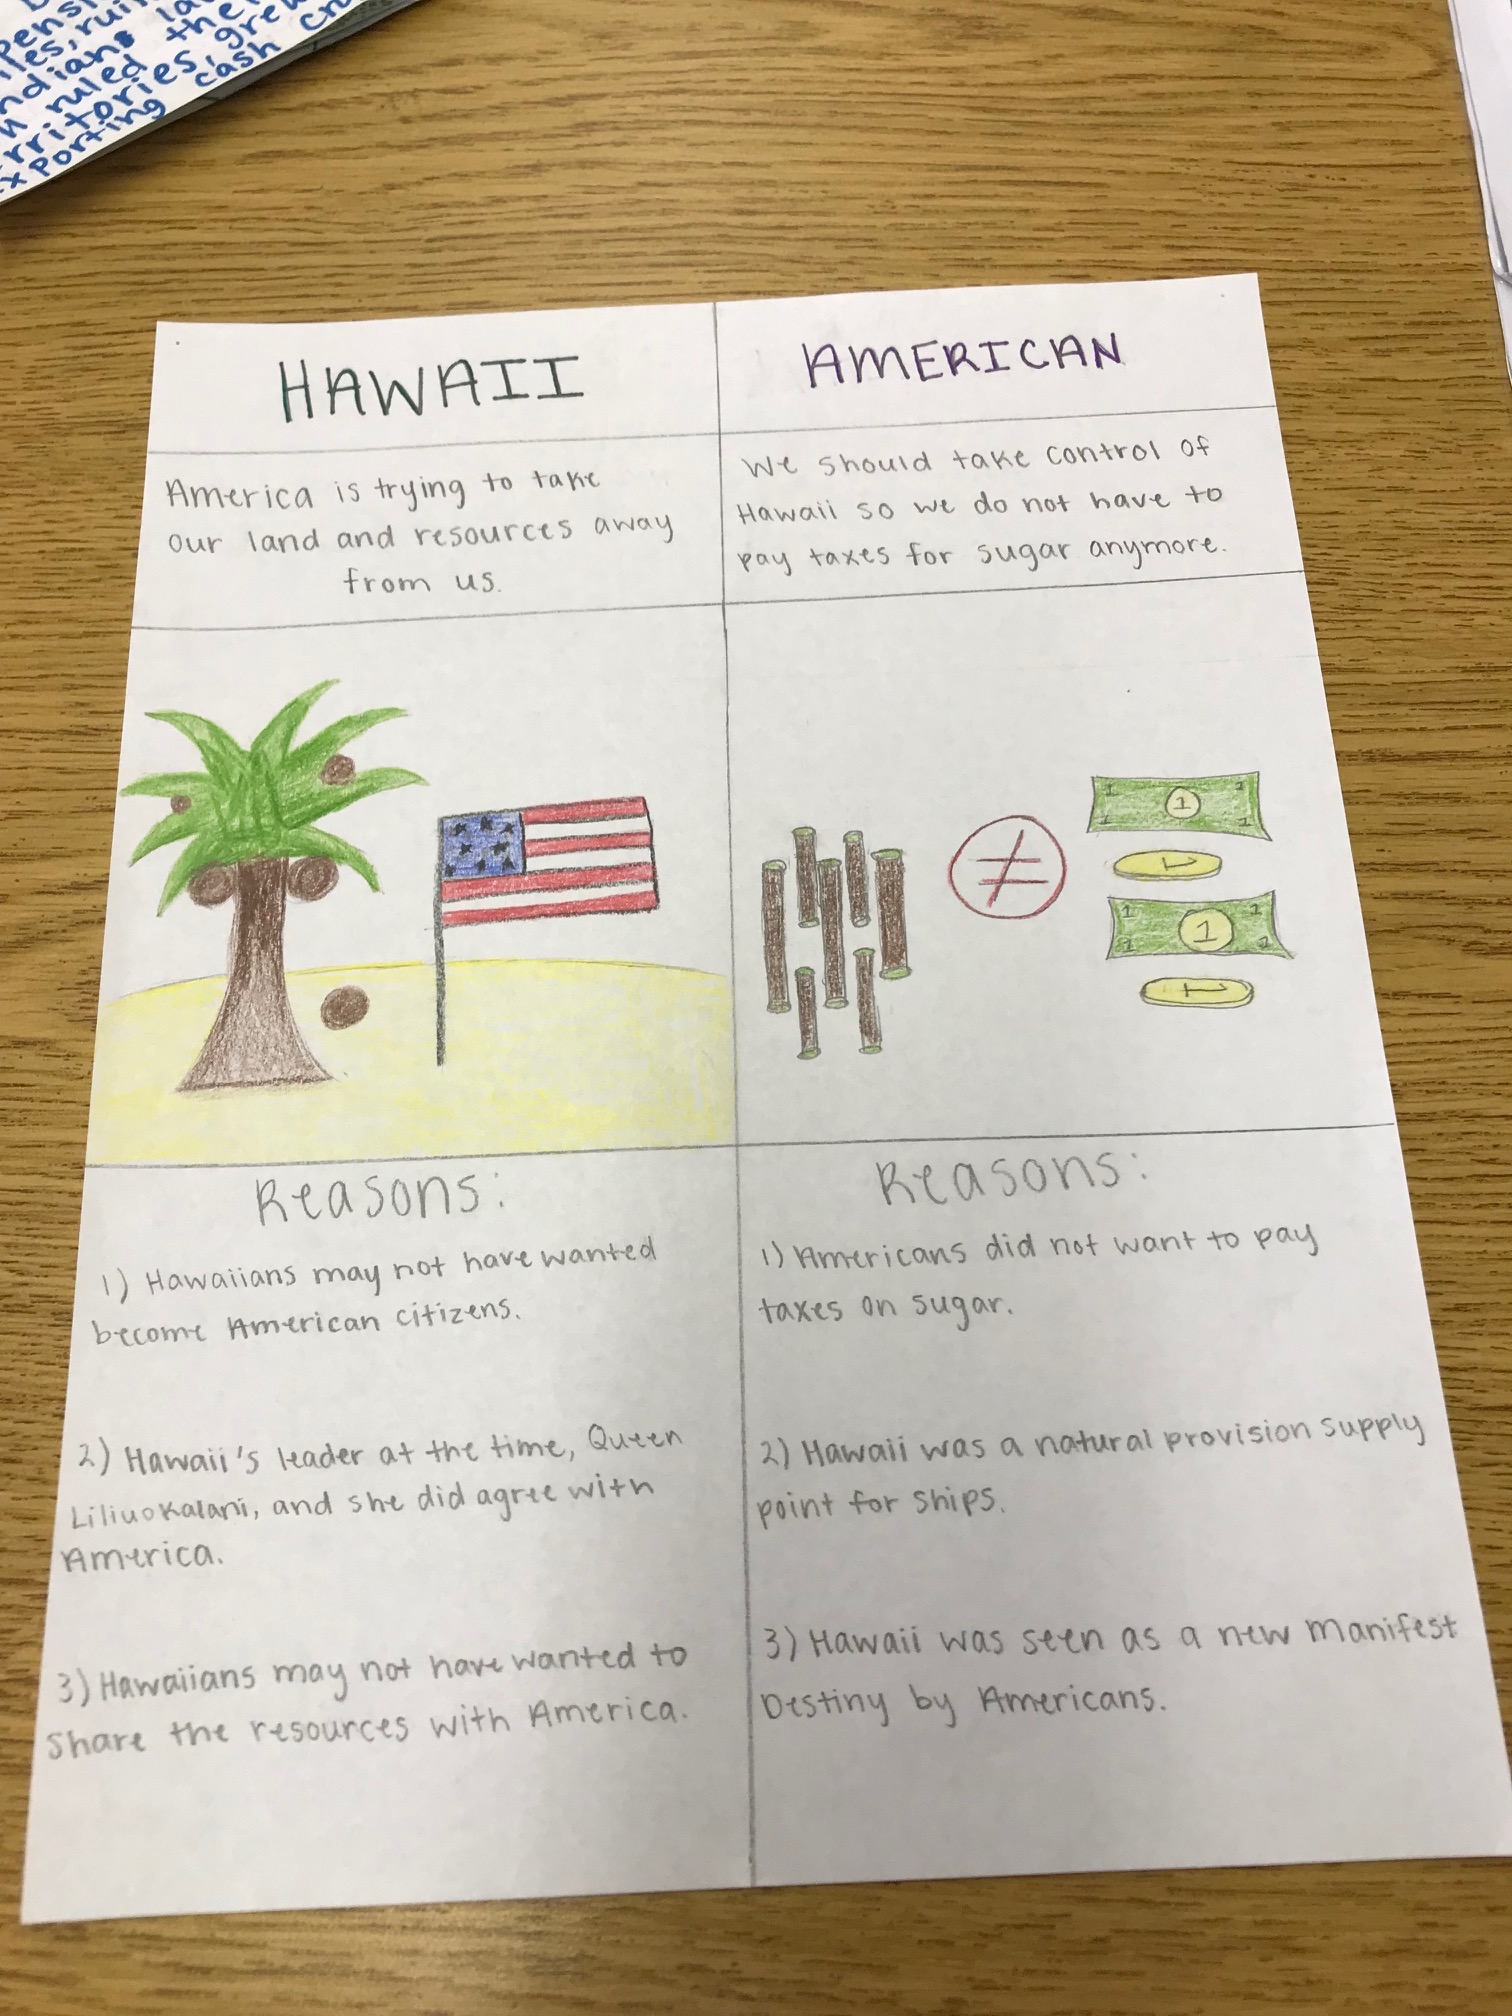 ruled the
rritories, grew
xporting cash
HAWAII
America is trying to take
our land and resources away
from us.
AMERICAN
We should take control of
Hawaii so we do not have to
pay taxes for sugar anymore.
1 1
1
1 1
1
1 1
1
1 1
1
Reasons:
1) Hawaiians may not have wanted
become American citizens.
2) Hawaii's leader at the time, Queen
Liliuokalani, and she did agree with
America.
3) Hawaiians may not have wanted to
share the resources with America.
Reasons:
1) Americans did not want to pay
taxes on sugar.
2) Hawaii was a natural provision supply
point for ships.
3) Hawaii was seen as a new Manifest
Destiny by Americans.